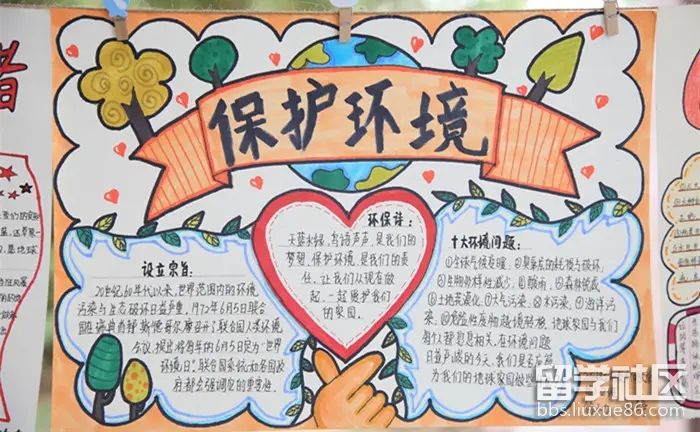 保护环境
设立宗旨:
20世纪60年代以来,世界范围内的环境
污染与生态破坏日益严重,1972年6月5日联合
国在瑞典首都斯德哥尔摩召开了联合国人类环境
会议,提出将每年的6月5日定为“世界
环境日”。联合国系统和各国政
府都会强调它的重要性。
环保诗:
天蓝水绿,鸟语声声,是我们的
梦想。保护环境,是我们的责
任。让我们从现在做
起,一起维护我们
的家园。
十大环境问题:
①全球气候变暖,②臭氧层的耗损与破坏,
③生物多样性减少,④酸雨,⑤森林锐减
⑥土地荒漠化,⑦大气污染,⑧水污染,⑨海洋污
染,⑩危险性废物越境转移。地球家园与我们
每个人息息相关,在环境问题
日益严峻的今天,我们是否应该
为我们的地球家园做些
留学社区
bbs.liuxue86.com
者